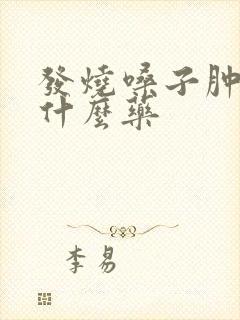 發燒嗓子肿
什麼藥
李易